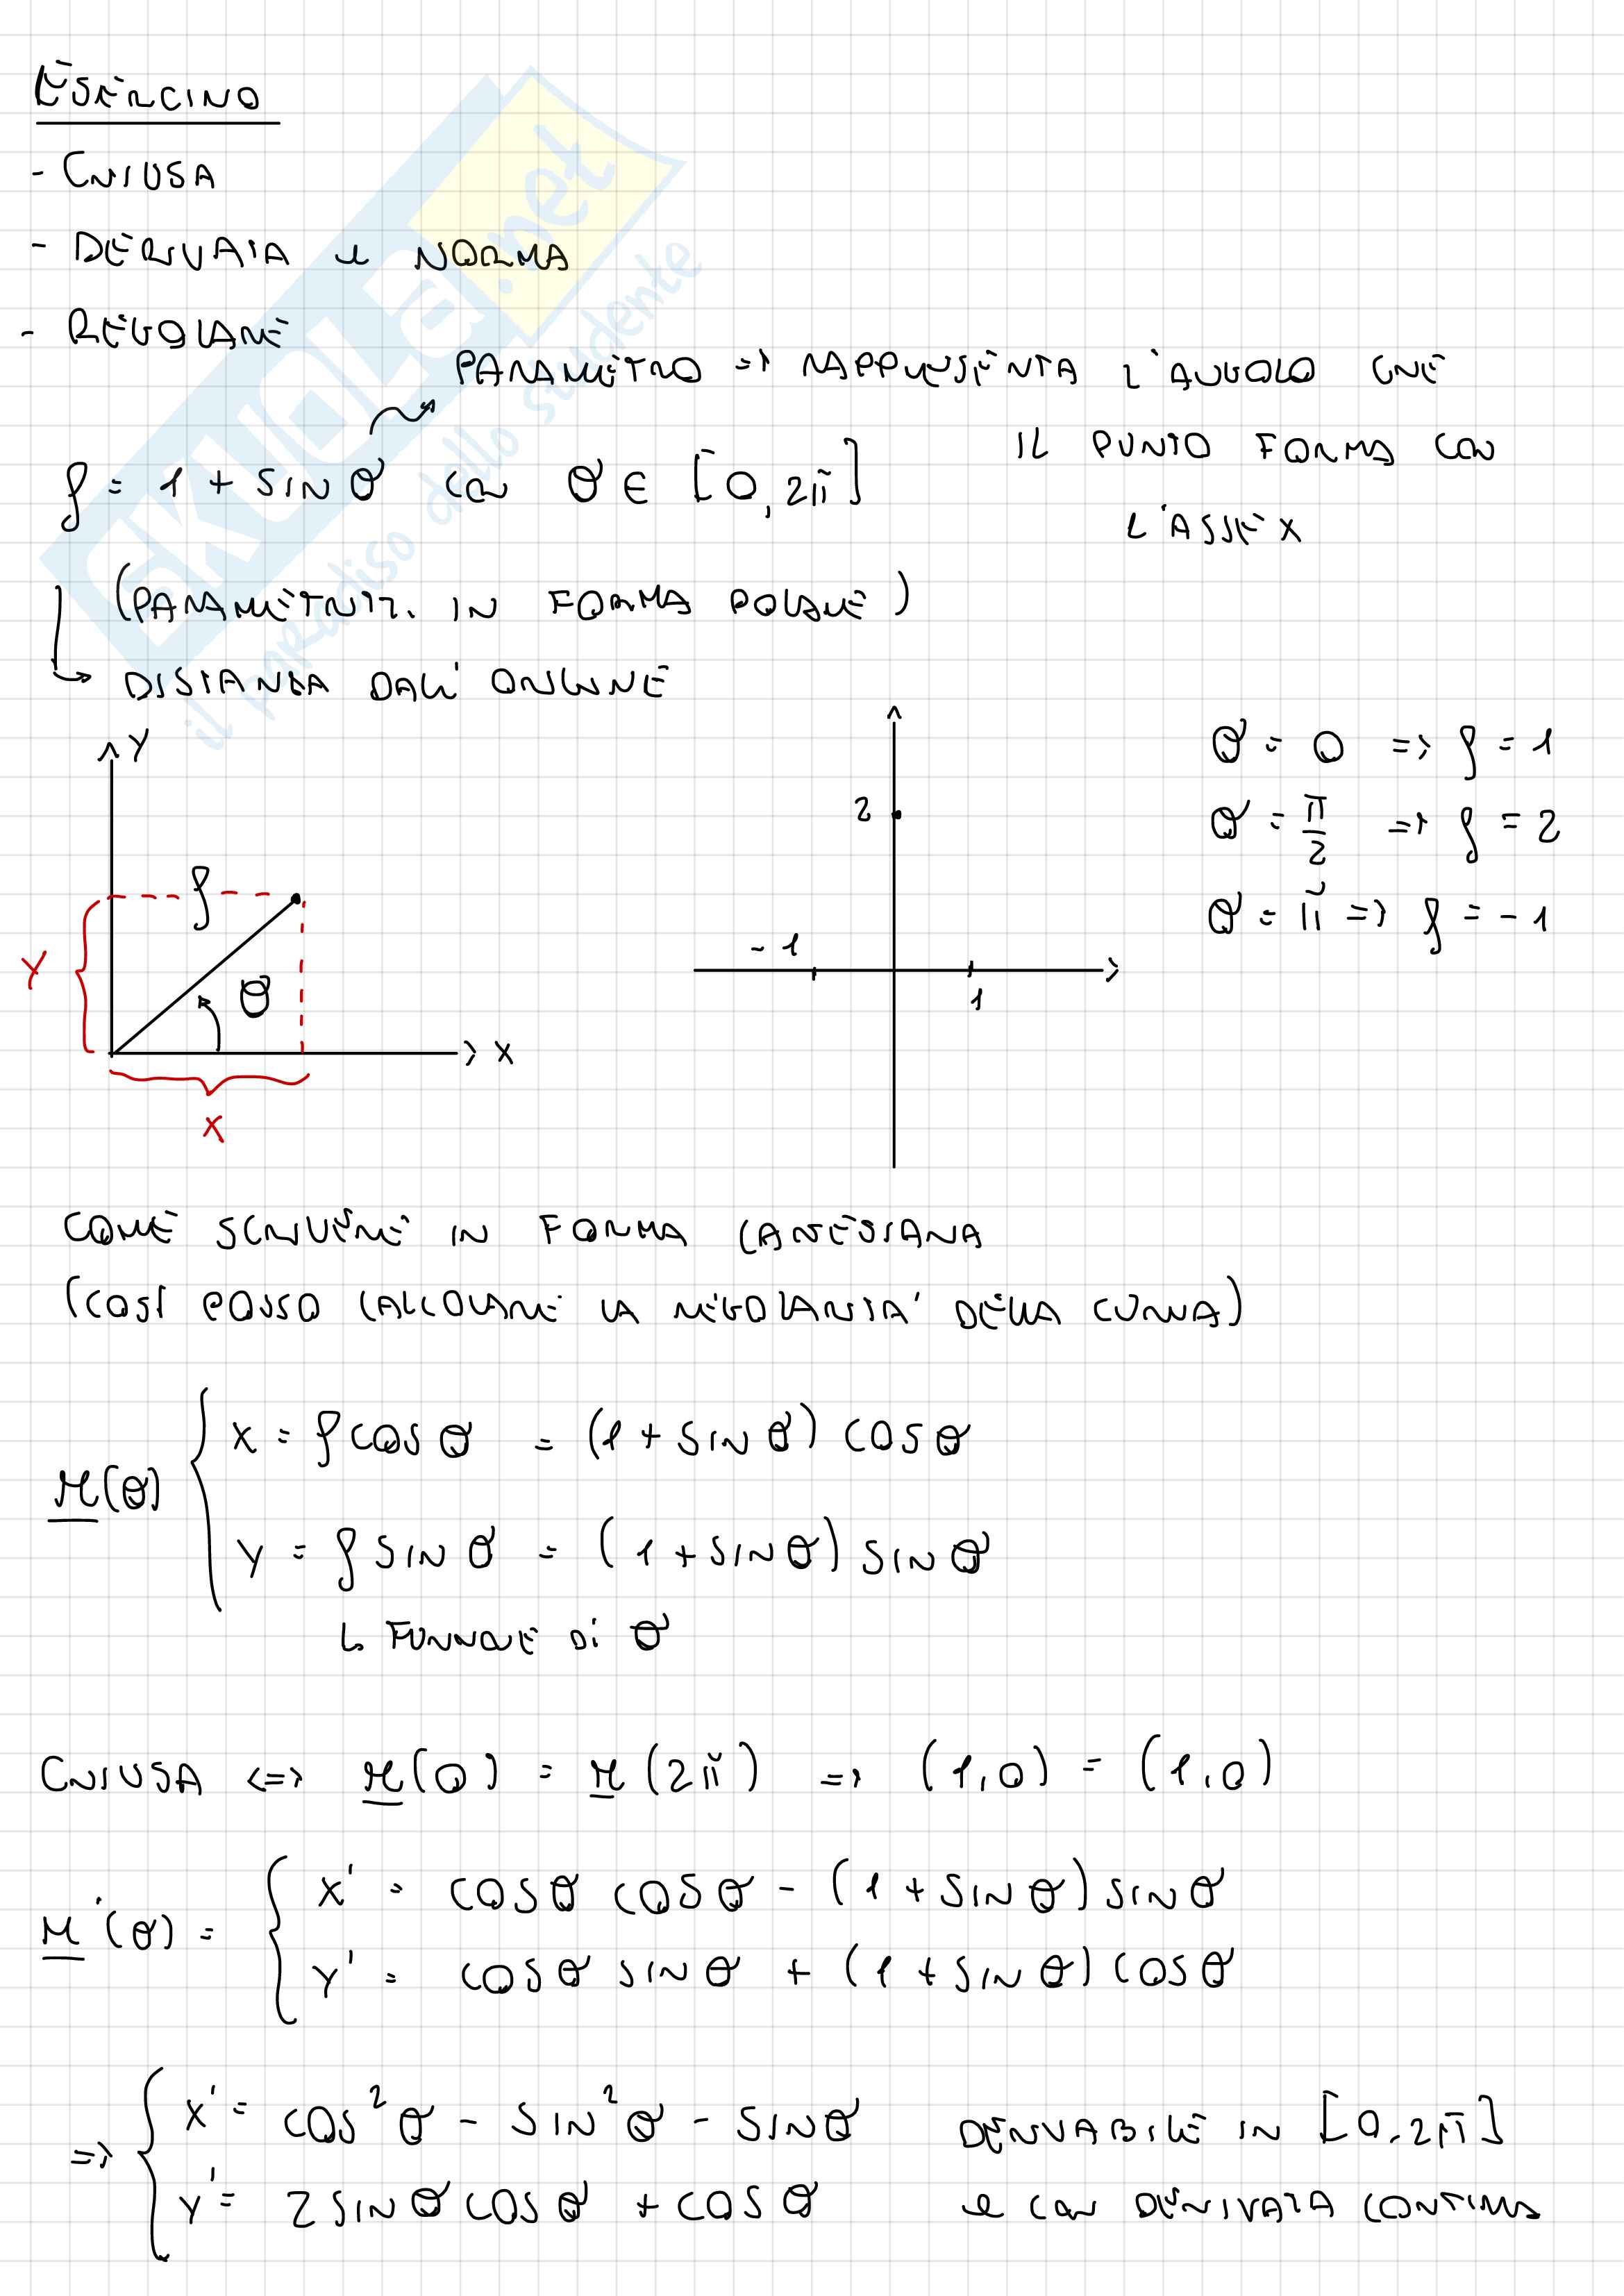 ESERCIZIO
- CHIUSA
- DERIVATA e NORMA
- REGOLARE
PARAMETRO => RAPPRESENTA L'ANGOLO CHE
IL PUNTO FORMA CON
L'ASSE X
ρ = 1 + SIN θ con θ ∈ [0, 2π]
(PARAMETRIZ. IN FORMA POLARE)
↳ DISTANZA DALL' ORIGINE
Y
ρ
θ
Y
X
X
2
-1
1
θ = 0 => ρ = 1
θ = π/2 => ρ = 2
θ = π => ρ = -1
COME SCRIVERE IN FORMA CARTESIANA
(COSÌ POSSO CALCOLARE LA REGOLARITA' DELLA CURVA)
r(θ) { X = ρ COS θ = (1 + SIN θ) COS θ
Y = ρ SIN θ = (1 + SIN θ) SIN θ
↳ FUNZIONE DI θ
CHIUSA <=> r(0) = r(2π) => (1,0) = (1,0)
r'(θ) = { X' = COS θ COS θ - (1 + SIN θ) SIN θ
Y' = COS θ SIN θ + (1 + SIN θ) COS θ
=> { X' = COS²θ - SIN²θ - SIN θ DERIVABILE IN [0, 2π]
Y' = 2 SIN θ COS θ + COS θ e con DERIVATA CONTINUA
SKUOLA.net
il paradiso dello studente